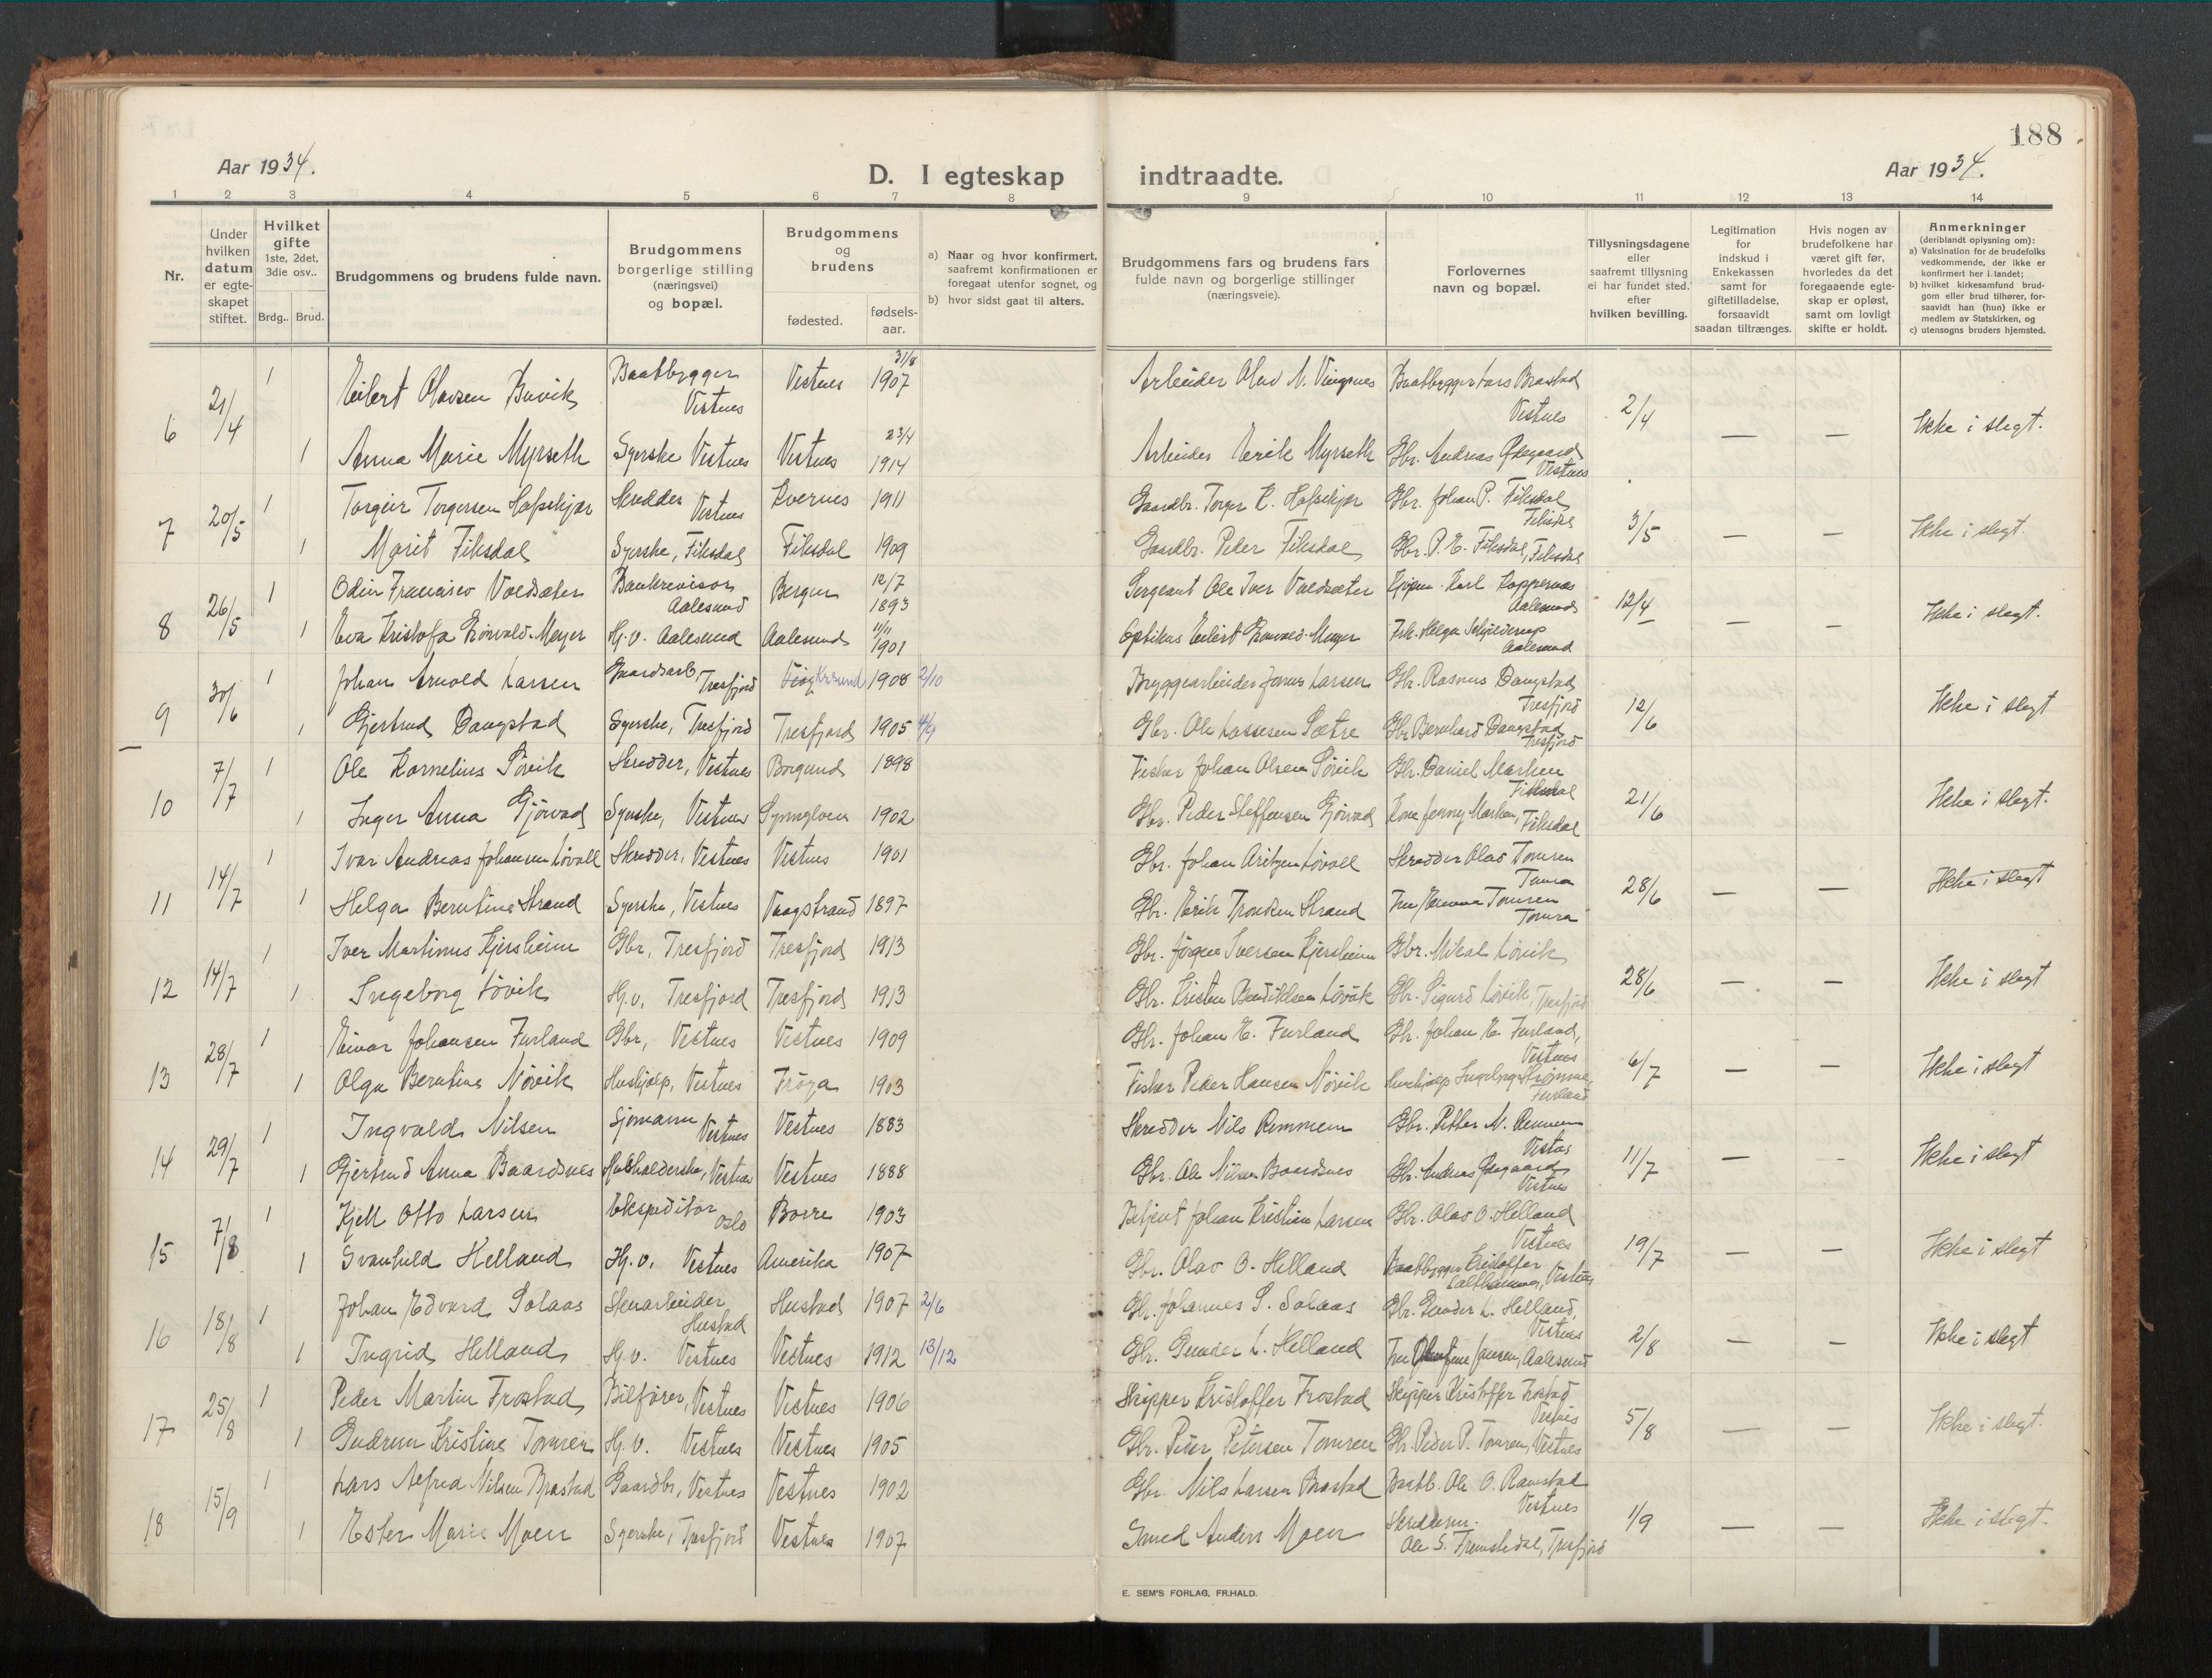 188
Aar 1934.
D. I egteskap indtraadte.
Aar 1934.
1 2 3 4 5 6 7 8 9 10 11 12 13 14
Nr.
Under hvilken datum er egteskapet stiftet.
Hvilket gifte 1ste, 2det, 3die osv..
Brdg.. Brud.
Brudgommens og brudens fulde navn.
Brudgommens borgerlige stilling (næringsvei) og bopæl.
Brudgommens og brudens
fødested.
fødsels-aar.
a) Naar og hvor konfirmert, saafremt konfirmationen er foregaat utenfor sognet, og
b) hvor sidst gaat til alters.
Brudgommens fars og brudens fars fulde navn og borgerlige stillinger (næringsveie).
Forlovernes navn og bopæl.
Tillysningsdagene eller saafremt tillysning ei har fundet sted. efter hvilken bevilling.
Legitimation for indskud i Enkekassen samt for giftetilladelse, forsaavidt saadan tiltrænges.
Hvis nogen av brudefolkene har været gift før, hvorledes da det foregaaende egteskap er opløst, samt om lovligt skifte er holdt.
Anmerkninger (deriblandt oplysning om):
a) Vaksination for de brudefolks vedkommende, der ikke er konfirmert her i landet;
b) hvilket kirkesamfund brudgom eller brud tilhører, forsaavidt han (hun) ikke er medlem av Statskirken, og
c) utensogns bruders hjemsted.
6 21/4 1 Eilert Olavsen Buvik Baatbygger Vestnes Vestnes 31/8 1907 Arbeider Olav N. Vingsnes Baatbygger Lars Brastad Vestnes 2/4 — — Ikke i slegt.
1 Anna Marie Myrseth Syerske Vestnes Vestnes 23/4 1914 Arbeider Eirik Myrseth Gbr. Andreas Ødegaard Vestnes
7 20/5 1 Torgeir Torgersen Hafskjær Skredder Vestnes Kvernes 1911 Gaardbr. Torger K. Hafskjær Gbr. Johan P. Fiksdal Fiksdal 3/5 — — Ikke i slegt.
1 Marit Fiksdal Syerske, Fiksdal Fiksdal 1909 Gaardbr. Peder Fiksdal Gbr. P. E. Fiksdal, Fiksdal
8 26/5 1 Odin Francisco Voldsæter Bankrevisor Aalesund Bergen 12/7 1893 Sergeant Ole Iver Voldsæter Kjøpm. Karl Koppernæs Aalesund 12/4 — — Ikke i slegt.
1 Eva Kristofa Grönvald-Meyer Hj.v. Aalesund Aalesund 11/11 1901 Optikus Eilert Grönvald-Meyer Frk. Helga Schjelderup Aalesund
9 30/6 1 Johan Arnold Larsen Gaardsarb. Tresfjord Krsund 1908 2/10 Bryggearbeider Jonas Larsen Gbr. Rasmus Daugstad Tresfjord 12/6 Ikke i slegt
1 Gjertrud Daugstad Syerske, Tresfjord Tresfjord 1905 4/9 Gbr. Ole Lassesen Sætre Gbr Bernhard Daugstad Tresfjord
10 7/7 1 Ole Kornelius Sövik Skredder, Vestnes Borgund 1898 Fisker Johan Olsen Sövik Gbr. Daniel Marken Fiksdal 21/6 Ikke i slegt.
1 Inger Anna Gjörvad Syerske, Vestnes 1902 Gbr. Peder Steffensen Gjörvad Kone Jenny Marken, Fiksdal
11 14/7 1 Ivar Andreas Johansen Lövoll Skredder, Vestnes Vestnes 1901 Gbr. Johan Lövoll Skredder Olav Tomren Tomra 28/6 — — Ikke i slegt
1 Helga Berntine Strand Syerske, Vestnes Vaagstrand 1897 Gbr. Eirik Trondsen Strand Fru Emma Tomren Tomra
12 14/7 1 Iver Martinus Kjersheim Gbr, Tresfjord Tresfjord 1913 Gbr. Jörgen Iversen Kjersheim Gbr. Mikal Lövik 28/6 — — Ikke i slegt
1 Ingeborg Lövik Hj.v. Tresfjord Tresfjord 1913 Gbr. Kristen Bendiktsen Lövik Gbr. Sigurd Lövik, Tresfjord
13 28/7 1 Einar Johansen Furland Gbr, Vestnes Vestnes 1909 Gbr. Johan E. Furland Gbr. Johan E. Furland, Vestnes 6/7 — — Ikke i slegt
1 Olga Berntine Nörvik Hushjælp, Vestnes Fröya 1903 Fisker Peder Hansen Nörvik Hushjælp Ingeborg Strömme, Furland
14 29/7 1 Ingvald Nilsen Sjömann Vestnes Vestnes 1883 Skredder Nils Remmem Gbr. Petter N. Remmem Vestnes 11/7 — - Ikke i slegt
1 Gjertrud Anna Baardsnes Husholderske, Vestnes Vestnes 1888 Gbr. Ole Nilsen Baardsnes Gbr. Andreas Ødegaard Vestnes
15 7/8 1 Kjell Otto Larsen Ekspeditör Oslo Borre 1903 Betjent Johan Kristian Larsen Gbr. Olav O. Helland Vestnes 19/7 — — Ikke i slegt
1 Svanhild Helland Hj.v. Vestnes Amerika 1907 Gbr. Olav O. Helland Baatbygger Kristoffer Salthammer, Vestnes
16 18/8 1 Johan Edvard Solaas Stenarbeider Hustad Hustad 1907 2/6 Gbr. Johannes S. Solaas Gbr. Gunder L. Helland, Vestnes 2/8 — — Ikke i slegt
1 Ingrid Helland Hj.v. Vestnes Vestnes 1912 13/12 Gbr. Gunder L. Helland Fru Jensen, Aalesund
17 25/8 1 Peder Martin Frostad Bilförer, Vestnes Vestnes 1906 Skipper Kristoffer Frostad Skipper Kristoffer Frostad Vestnes 5/8 — — Ikke i slegt.
1 Gudrun Kristine Tomren Hj.v. Vestnes Vestnes 1905 Gbr. Peder Petersen Tomren Gbr. Peder P. Tomren, Vestnes
18 15/9 1 Lars Alfred Nilsen Brastad Gaardbr, Vestnes Vestnes 1902 Gbr. Nils Larsen Brastad Baatb. Ole O. Ramstad Vestnes 1/9 — — Ikke i slegt.
1 Ester Marie Moen Syerske, Tresfjord Vestnes 1907 Smed Anders Moen Ole S. Fremstedal, Tresfjord
E. SEM'S FORLAG, FR.HALD.